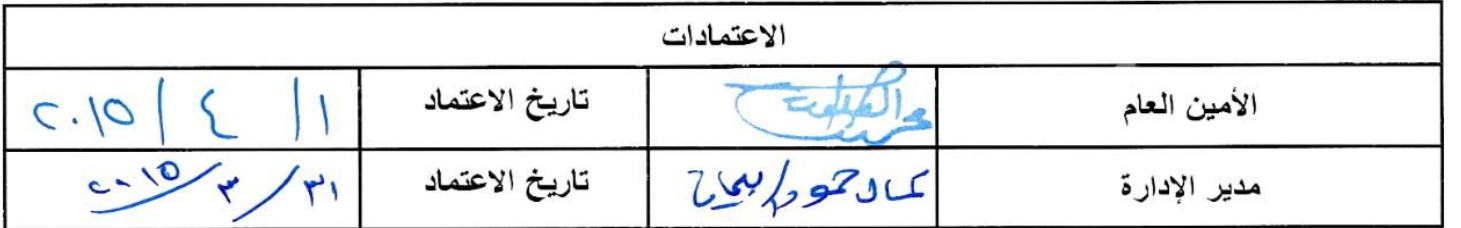 الاعتمادات
الأمين العام تاريخ الاعتماد ١/ ٤ / ٢٠١٥
مدير الإدارة تاريخ الاعتماد ٣١/ ٣ / ٢٠١٥